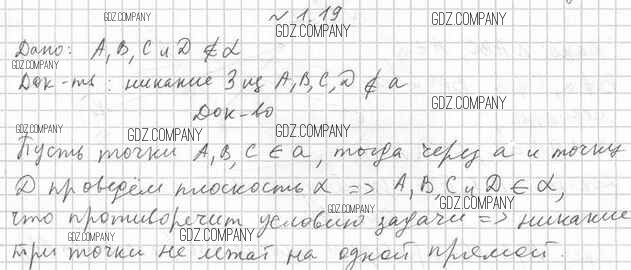 № 1.19
GDZ.COMPANY
GDZ.COMPANY
GDZ.COMPANY
Дано: A, B, C и D ∉ α
GDZ.COMPANY
Док-ть: никакие 3 из A, B, C, D ∉ a
GDZ.COMPANY
Док-во
GDZ.COMPANY
GDZ.COMPANY
GDZ.COMPANY
Пусть точки A, B, C ∈ a, тогда через a и точку
D проведём плоскость α => A, B, C и D ∈ α,
GDZ.COMPANY
GDZ.COMPANY
что противоречит условию задачи => никакие
GDZ.COMPANY
GDZ.COMPANY
три точки не лежат на одной прямой.